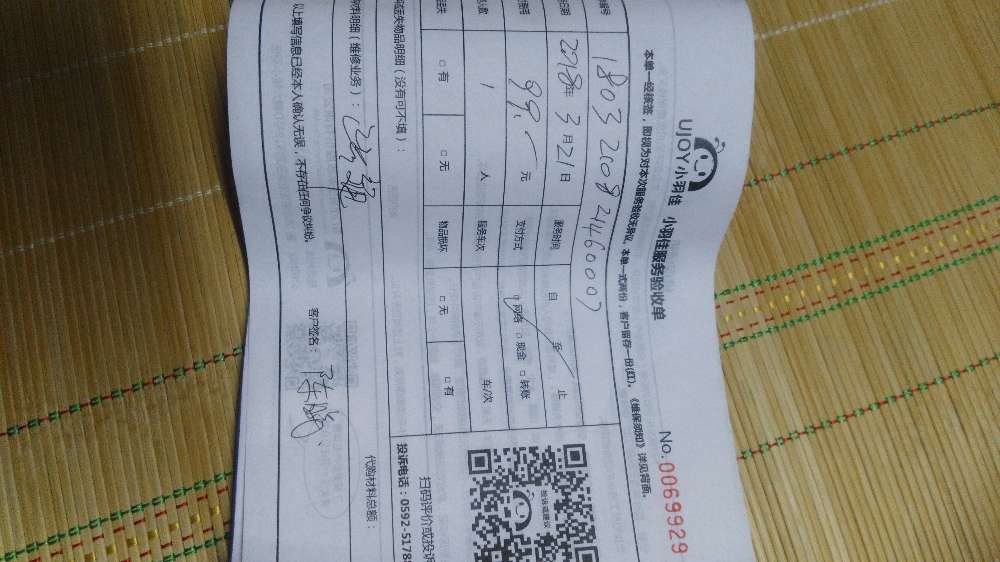 UJOY小羽佳 小羽佳服务验收单
No. 0069929
本单一经核签，即视为对本次服务验收无异议。本单一式两份，客户留存一份(红)。《维保须知》详见背面。
编号 1803200824460007
日期 2018年3月21日 服务时间 自 至 止
99.- 元 支付方式 □网络 □现金 □转账
人数 1 人 服务车次 车/次
丢失 □有 □无 物品损坏 □无 □有
丢失物品明细（没有可不填）：
材料明细（维修业务）：
代购材料总额：
以上填写信息已经本人确认无误，不存在任何争议纠纷。 客户签名：
扫码评价或投诉
投诉电话：0592-5178